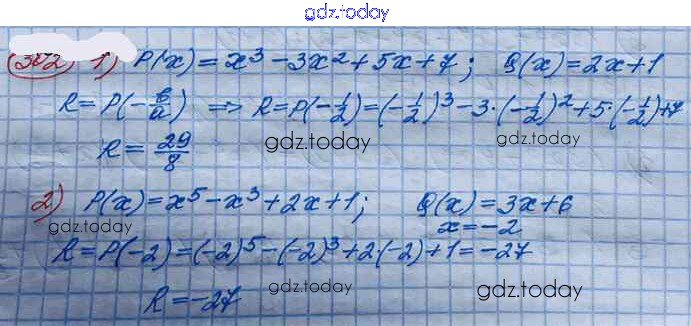 gdz.today
1) P(x) = x³ - 3x² + 5x + 7; Q(x) = 2x + 1
R = P(-b/a) ⇒ R = P(-1/2) = (-1/2)³ - 3·(-1/2)² + 5·(-1/2) + 7
gdz.today
R = 29/8
2) P(x) = x⁵ - x³ + 2x + 1; Q(x) = 3x + 6
gdz.today x = -2
R = P(-2) = (-2)⁵ - (-2)³ + 2(-2) + 1 = -27
R = -27 gdz.today gdz.today